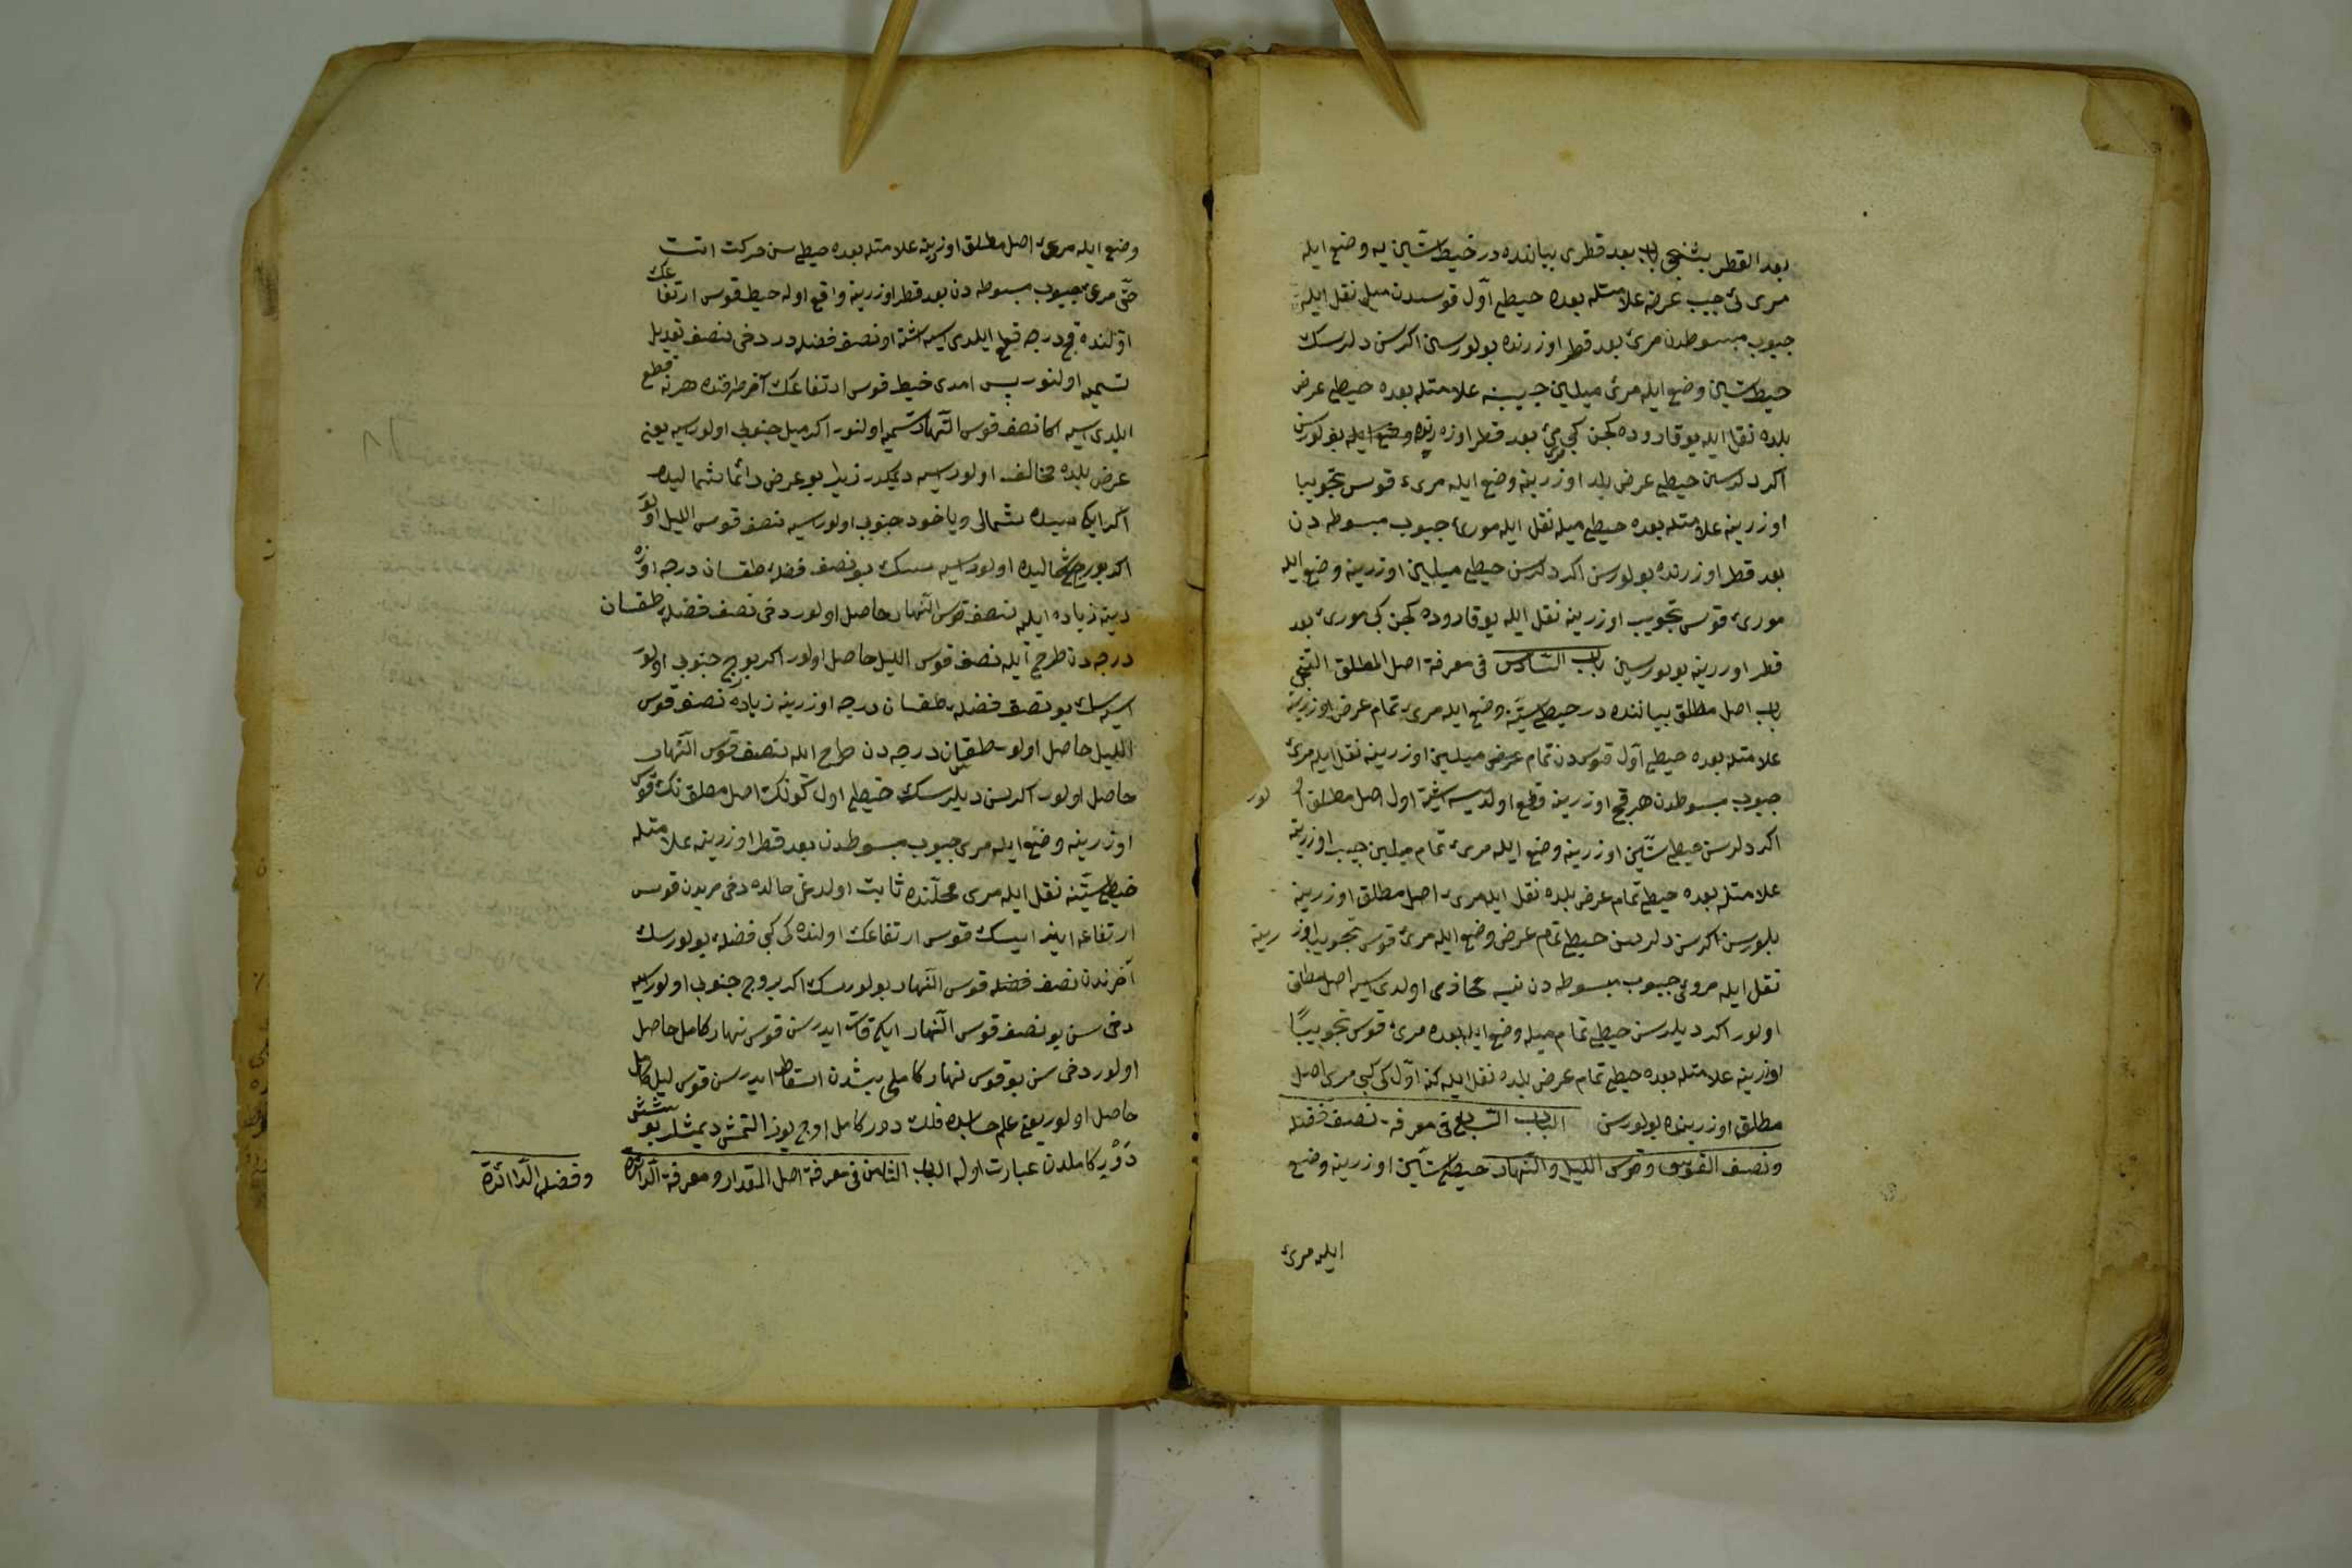 بعد القطر بشنجى باب بعد قطرى بياننده در خيط ستين يه وضع ايله
مرى ئ جيب عرضه علامتله بعده خيطى آول قوسدن ميله نقل ايله
جيوب مبسوطدن مرئ بعد قطر اوزرنده بولورسن اكرسن دلرسك
خيط ستين وضع ايله مرئ ميلين جيبينه علامتله بعده خيطى عرض
بلده نقل ايله يوقاروده كجن كبى مرى بعد قطر اوزرنده وضع ايله بولورسن
اكر دلرسن خيطى عرض بلد اوزرينه وضع ايله مرىء قوس تجويبا
اوزرينه علامتله بعده خيطى ميله نقل ايله مورئ جيوب مبسوطه دن
بعد قطر اوزرنده بولورسن اكر دلرسن خيطى ميلين اوزرينه وضع ايله
مورىء قوس تجويب اوزرينه نقل ايله يوقاروده كجن كبى مورىء بعد
قطر اوزرينه بولورسين باب السادس فى معرفة اصل المطلق التنجى
باب اصل مطلق بياننده در خيط ستينه وضع ايله مرىء تمام عرض اوزرينه
علامتله بعده خيطى آول قوسدن تمام عرض ميلين اوزرينه نقل ايله مرئ
جيوب مبسوطدن هر قچ اوزرينه قطع اولديسه اشته اول اصل مطلق اولور
اكر دلرسن خيط ستين اوزرينه وضع ايله مرىء تمام ميلين جيب اوزرينه
علامتله بعده خيطى تمام عرض بلده نقل ايله مرىء اصل مطلق اوزرينه
بلورسن اكرسن دلرسن خيطى تمام عرض وضع ايله مرئ قوس تجويب اوزرينه
نقل ايله مروئ جيوب مبسوطه دن نيه محاذى اولدى يسه اصل مطلق
اولور اكر ديلرسن خيطى تمام ميله وضع ايله بعده مرىء قوس تجويباً
اوزرينه علامتله بعده خيطى تمام عرض بلده نقل ايله كنه اول كى كبى مرى اصل
مطلق اوزرينده بولورسن الباب السابع فى معرفة نصف فضله
ونصف القوس وقوس الليل والنهار خيط ستين اوزرينه وضع
ايله مرئ
وضع ايله مرىء اصل مطلق اوزرينه علامتله بعده خيط سن حركت اتت
حتى مرىء جيوب مبسوطه دن بعد قطر اوزرينه واقع اوله خيط قوس ارتفاعك
اولنده قچ درجه قطع ايلدى يسه اشته او نصف فضله در دخى نصف تعديل
تسميه اولنور پس امدى خيط قوس ارتفاعك آخر طرفنده هرنه قطع
ايلدى يسه اكا نصف قوس النهار تسميه اولنور اكر ميل جنوبى اولورسه يعنى
عرض بلده مخالف اولورسه ديمكدر زيرا بو عرض دائما شماليده
اكر ايكيسيده شمالى وياخود جنوبى اولورسه نصف قوس الليل اولور
اكر بورج شماليده اولورسه سك بو نصف فضله طقسان درجه اوزه
رينه زياده ايله نصف قوس النهار حاصل اولور دخى نصف فضله طقسان
درجه دن طرح ايله نصف قوس الليل حاصل اولور اكر بورج جنوبى اولور
ايسه سك بو نصف فضله طقسان درجه اوزرينه زياده نصف قوس
الليل حاصل اولور طقسان درجه دن طرح ايله نصف قوس النهار
حاصل اولور اكرسن ديلرسك خيطى اول كونك اصل مطلق نك قوس
اوزرينه وضع ايله مرى جيوب مبسوطدن بعد قطر اوزرينه علامتله
خيط ستينه نقل ايله مرى محلنده ثابت اولدغى حالده دخى مريدن قوس
ارتفاعه اينر ايسك قوس ارتفاعك اولنده كى كبى فضله بولورسك
آخرندن نصف فضله قوس النهار بولورسك اكر بروج جنوبى اولورسه
دخى سن بو نصف قوس النهار ايكى قات ايدرسن قوس نهار كامل حاصل
اولور دخى سن بو قوس نهار كاملى بشدن اسقاط ايدرسن قوس ليل كامل
حاصل اولور يعنى علم حسابده فلك دور كامل اوچ يوز التمش ديمشلر بو شش
دَوْرِ كاملدن عبارت اوله الباب الثامن فى معرفة اصل المقدار ومعرفة الدائرة
وفضلة الدائرة